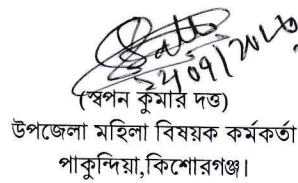 (স্বপন কুমার দত্ত)
উপজেলা মহিলা বিষয়ক কর্মকর্তা
পাকুন্দিয়া,কিশোরগঞ্জ।